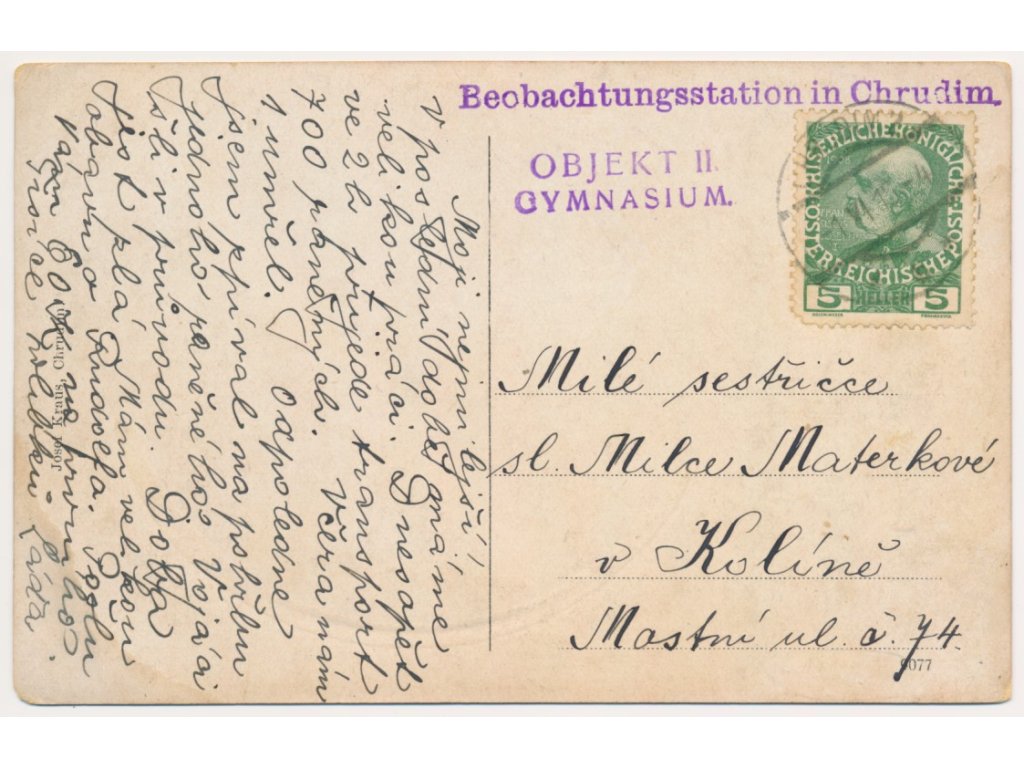 Beobachtungsstation in Chrudim.
OBJEKT II.
GYMNASIUM.
KAISERLICHE KÖNIGLICHE ÖSTERREICHISCHE POST
5 HELLER 5
Milé sestřičce
sl. Milce Materkové
v Kolíně
Mostní ul. č. 74.
9077
Josef Kraus, Chrudim
Moji nejmilejší!
V poslední době máme
velikou práci. Dnes opět
ve 2h přijede transport
700 raněných. Včera nám
1 umřel. Odpoledne
jsem zpíval na pohřbu
jednoho raněného. Vojáci
šli v průvodu. Dotza
list zlá. Mám velikou
obavu o Rudolfa. Spolu
Vám
srdce Láďa.